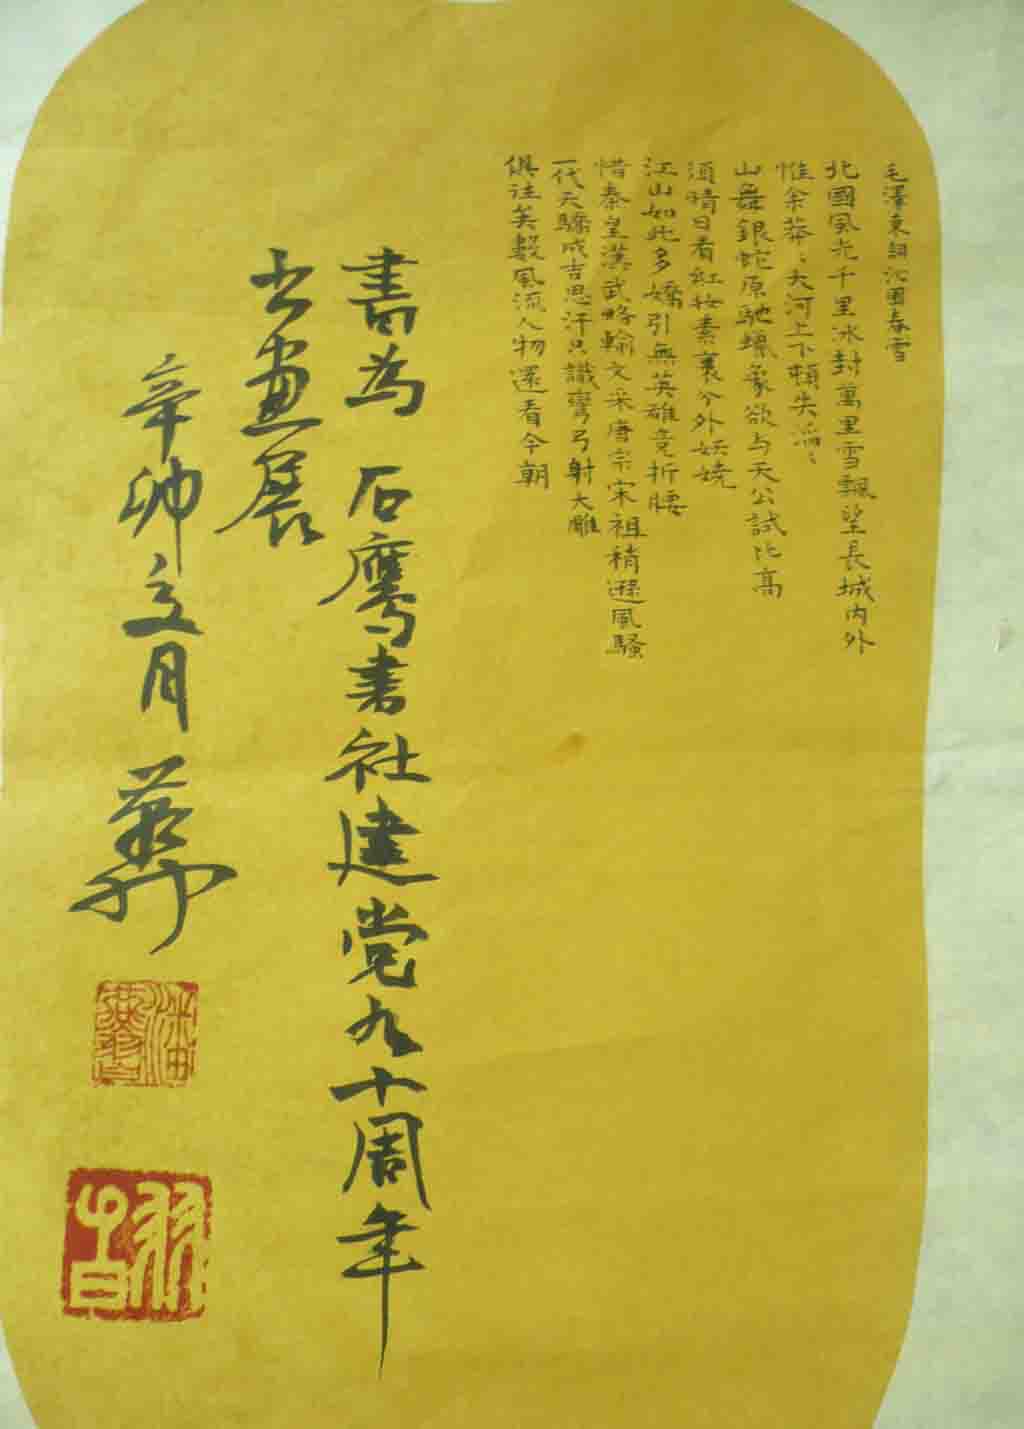 毛澤東詞沁園春雪
北國風光千里冰封萬里雪飄望長城内外
惟余莽〻大河上下頓失滔〻
山舞銀蛇原馳蠟象欲与天公試比高
須晴日看紅妆素裹分外妖嬈
江山如此多嬌引無英雄竞折腰
惜秦皇漢武略輸文采唐宗宋祖稍遜風騷
一代天驕成吉思汗只識彎弓射大雕
俱往矣數風流人物還看今朝
書為 石鹰書社建党九十周年
书畫展
辛卯之月